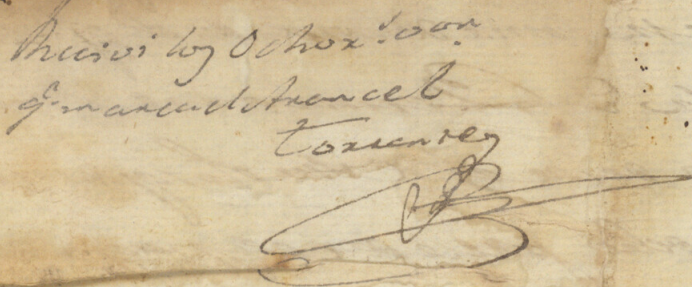 Recivi los Ocho r.s con
q.e marca el Arancel
Torrenres